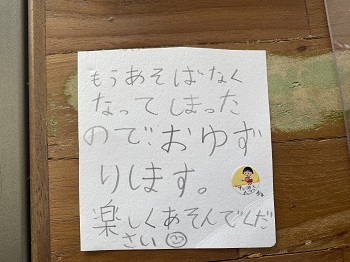 もうあそばなく
なってしまった
ので、おゆず
ります。
楽しくあそんでくだ
さい